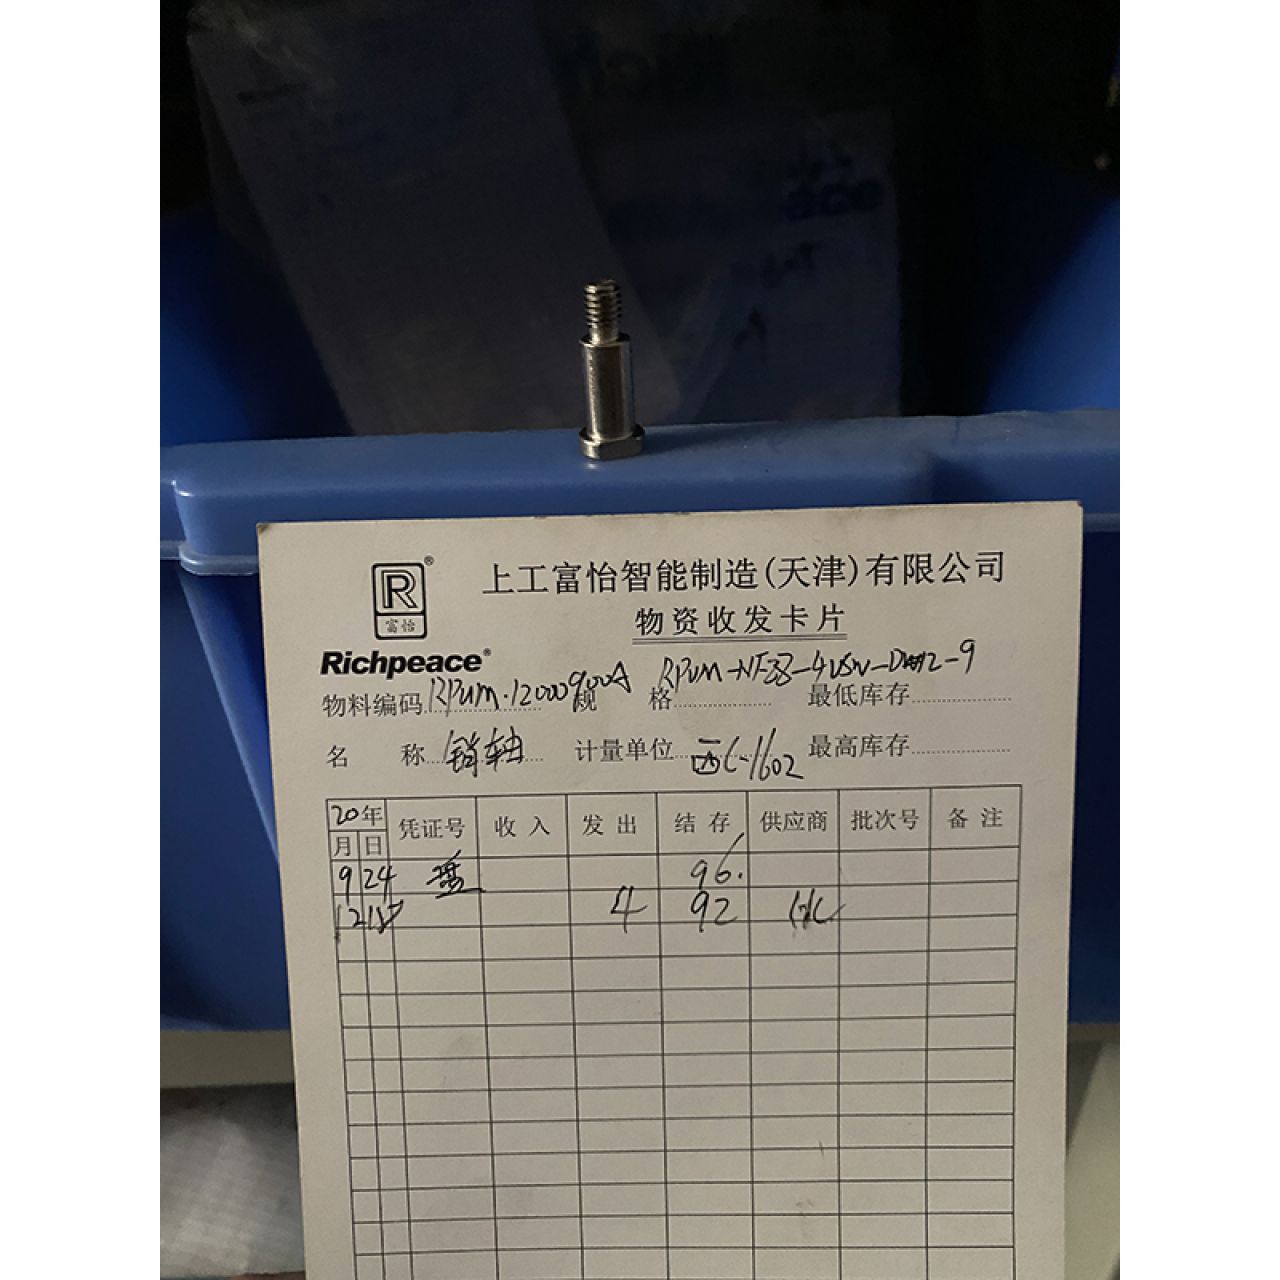 R®
富怡
上工富怡智能制造(天津)有限公司
物资收发卡片
Richpeace®
物料编码 RPUM.12000900A 规格 RPUM-NF-33-4 最低库存
名称 销轴 计量单位 西C-1602 最高库存
20年 凭证号 收入 发出 结存 供应商 批次号 备注
月 日
9 24 盘 96.
12 15 4 92